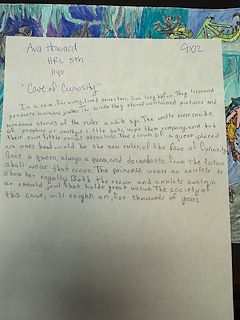 Ava Howard
9X12
HFL 5th
1140
"Cave of Curiosity"
In a cave far away, lived ancestors from long before. They treasured
pendants, rings and jewles. The walls they stored contained pictures and
wonderous stories of the ruler a while ago. The walls were made
of sapphire or amethyst. Little bats kept them company, and had
their own little social structure. The crown of a queen placed
on ones head would be the new ruler of the Cave of Curiosity.
Once a queen, always a queen, and decendants from the future
shall wear that crown. The princess wears an anklete to
show her royalty. Both the crown and anklets contain
an emerald jewl that holds great value. The society of
this cave, will reighn on, for thousands of years